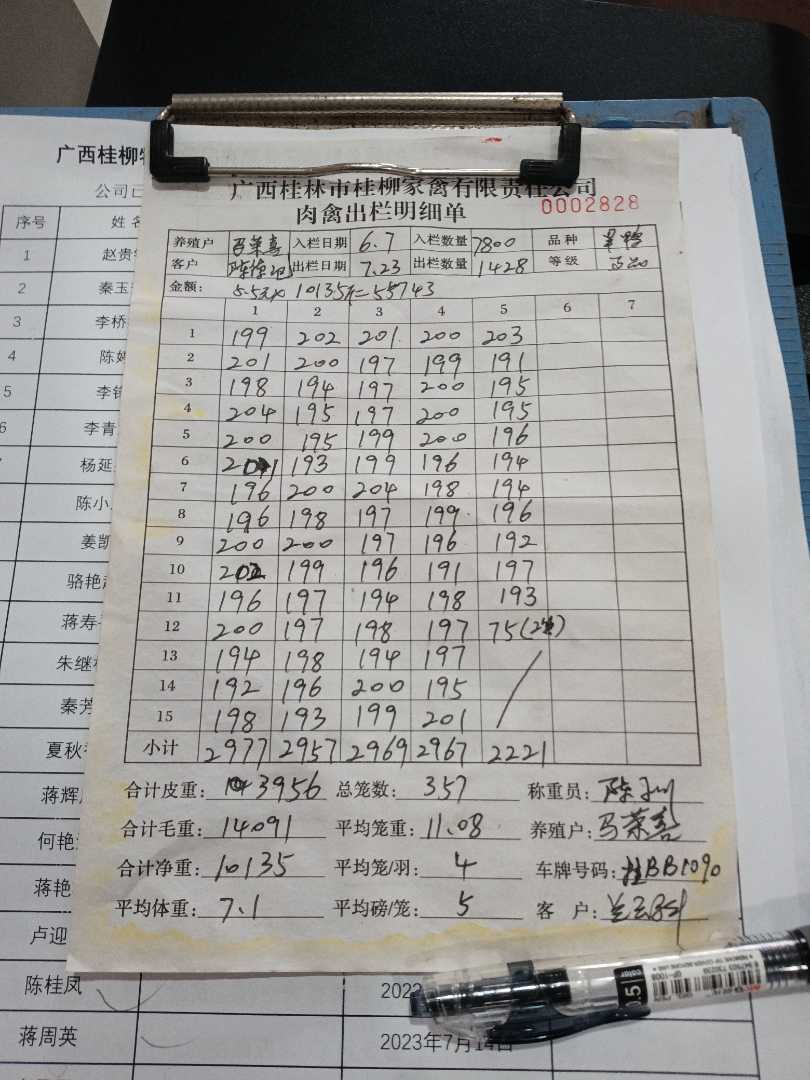 广西桂柳
公司已
序号 姓名
1 赵贵
2 秦玉
3 李桥
4 陈
5 李
李青
杨延
陈小
姜凯
骆艳
蒋寿
朱继
秦芳
夏秋
蒋辉
何艳
蒋艳
卢迎
陈桂凤
蒋周英
2023年7月14日
广西桂林市桂柳家禽有限责任公司
肉禽出栏明细单 0002828
养殖户 马荣喜 入栏日期 6.7 入栏数量 7800 品种
客户 出栏日期 7.23 出栏数量 1428 等级
金额: 5.5元x 10135斤=55743
1 2 3 4 5 6 7
1 199 202 201 200 203
2 201 200 197 199 191
3 198 194 197 200 195
4 204 195 197 200 195
5 200 195 199 200 196
6 201 193 199 196 194
7 196 200 204 198 194
8 196 198 197 199 196
9 200 200 197 196 192
10 202 199 196 191 197
11 196 197 194 198 193
12 200 197 198 197 75(2笼)
13 194 198 194 197
14 192 196 200 195
15 198 193 199 201
小计 2977 2957 2969 2967 2221
合计皮重: 3956 总笼数: 357 称重员:
合计毛重: 14091 平均笼重: 11.08 养殖户: 马荣喜
合计净重: 10135 平均笼/羽: 4 车牌号码: 桂BB1090
平均体重: 7.1 平均磅/笼: 5 客 户:
0.5 color
GP-1008